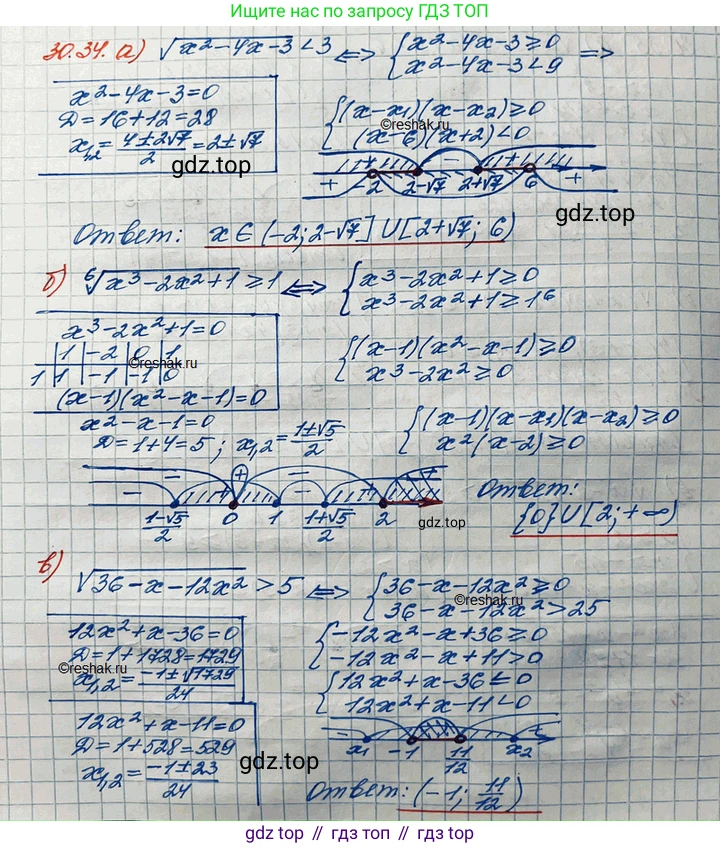 Ищите ответ по запросу ГДЗ ТОП
30.34. а) √(x²-4x-3) < 3 ⟺ { x²-4x-3 ≥ 0
x²-4x-3 < 9 ⟹
x²-4x-3=0
D=16+12=28
x₁,₂ = (4±2√7)/2 = 2±√7
{ (x-x₁)(x-x₂) ≥ 0
(x-6)(x+2) < 0
©reshak.ru
gdz.top
+ + - + +
-2 2-√7 2+√7 6
gdz.top
Ответ: x ∈ (-2; 2-√7] ∪ [2+√7; 6)
б) ⁶√(x³-2x²+1) ≥ 1 ⟺ { x³-2x²+1 ≥ 0
x³-2x²+1 ≥ 1⁶
x³-2x²+1=0
1 | -2 | 0 | 1
1 | 1 | -1 | -1 | 0
©reshak.ru
(x-1)(x²-x-1)=0
{ (x-1)(x²-x-1) ≥ 0
x³-2x² ≥ 0
x²-x-1=0
D=1+4=5; x₁,₂ = (1±√5)/2
{ (x-1)(x-x₁)(x-x₂) ≥ 0
x²(x-2) ≥ 0
- - + - +
- + - +
(1-√5)/2 0 1 (1+√5)/2 2
gdz.top
Ответ:
{0} ∪ [2; +∞)
в) √(36-x-12x²) > 5 ⟺ { 36-x-12x² ≥ 0
36-x-12x² > 25
©reshak.ru
12x²+x-36=0
D=1+1728=1729
x₁,₂ = (-1±√1729)/24
©reshak.ru
{ -12x²-x+36 ≥ 0
-12x²-x+11 > 0
{ 12x²+x-36 ≤ 0
12x²+x-11 < 0
12x²+x-11=0
D=1+528=529
x₁,₂ = (-1±23)/24
gdz.top
x₁ -1 11/12 x₂
Ответ: (-1; 11/12)
gdz.top // гдз топ // gdz.top